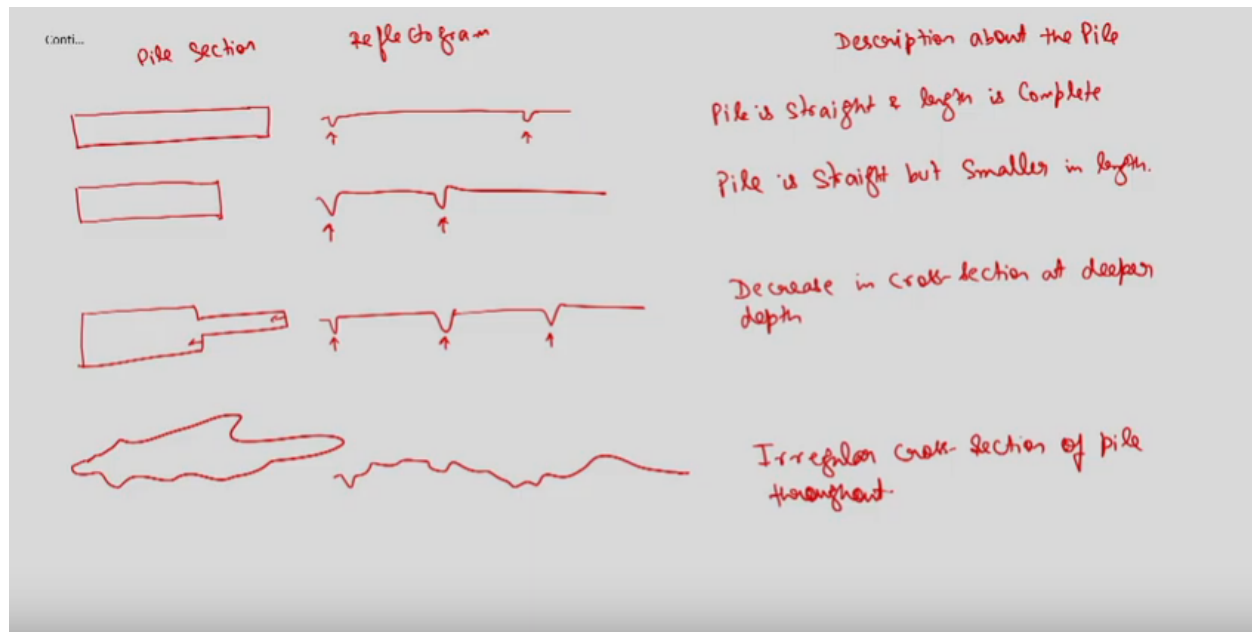 Conti...
Pile Section Reflectogram Description about the Pile
Pile is straight & length is Complete
Pile is Staight but Smaller in length.
Decrease in cross-section at deeper
depth
Irregular cross-section of pile
throughout.